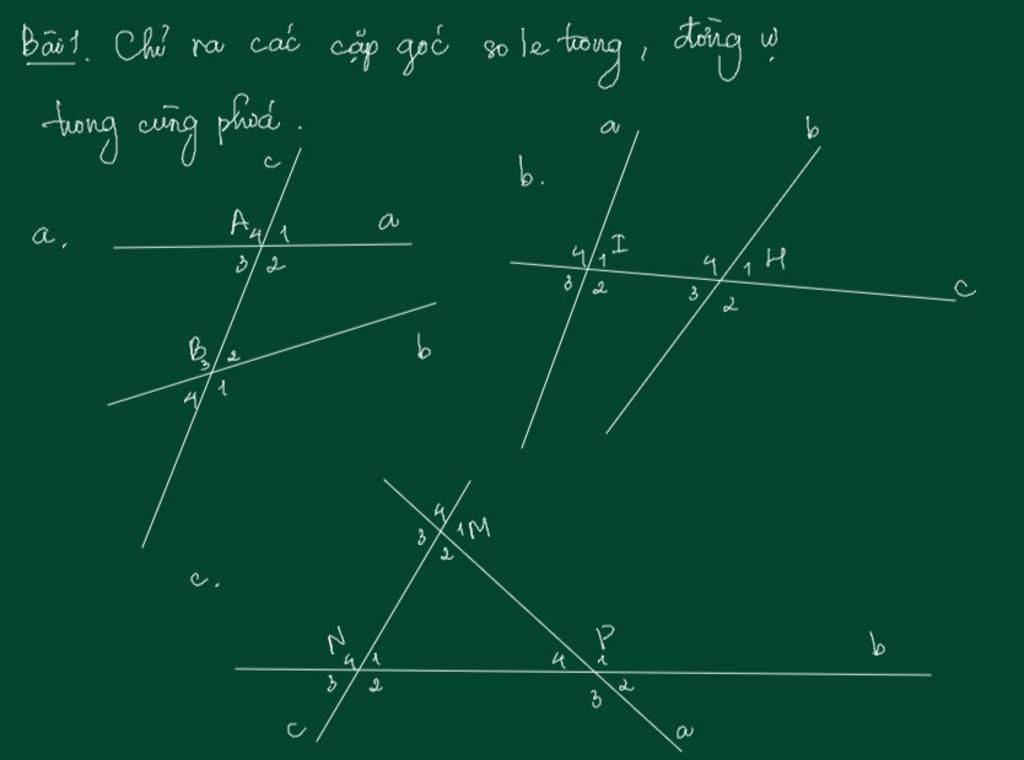 Bài 1. Chỉ ra các cặp góc so le trong, đồng vị
trong cùng phía.
a.
c
A 4 1
a
3 2
B 3 2
4 1
b
b.
a
b
4 1 I
3 2
4 1 H
3 2
c
c.
4
3 1 M
2
N 4 1
3 2
c
P
4 1
3 2
a
b